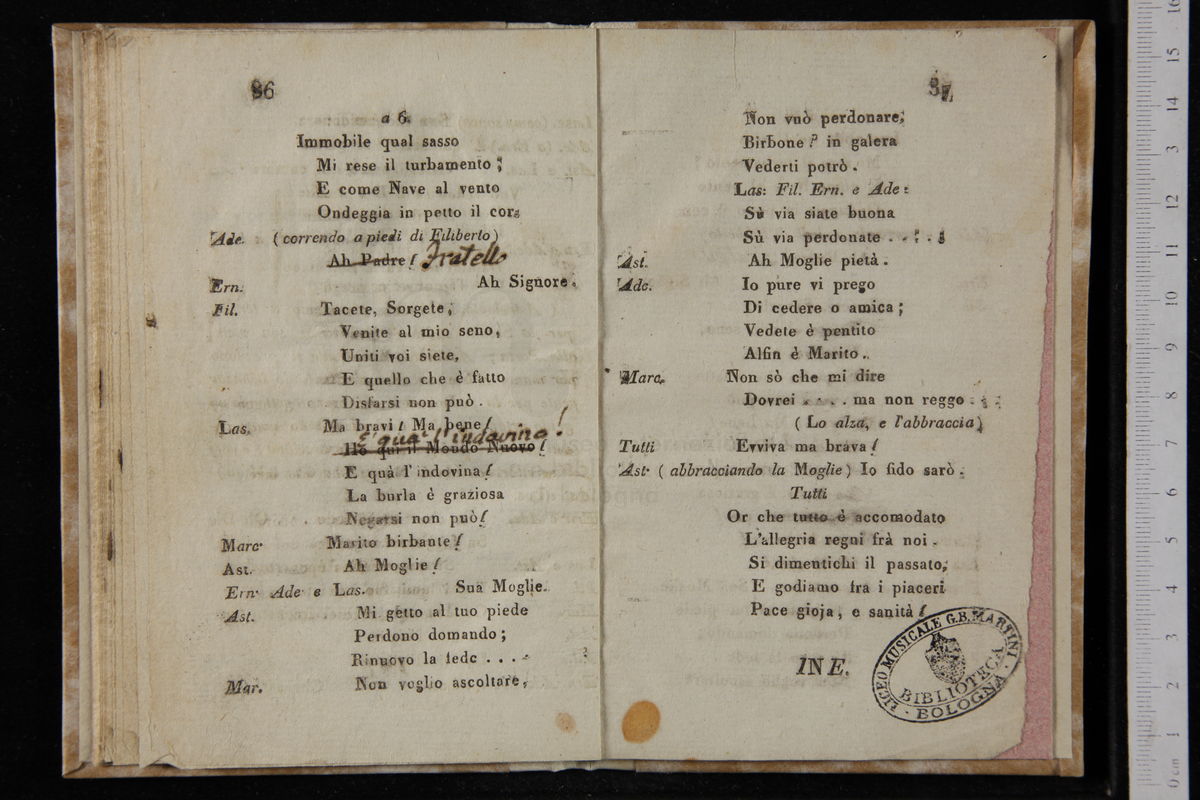 86
a 6.
Immobile qual sasso
Mi rese il turbamento;
E come Nave al vento
Ondeggia in petto il cor.
Ade. (correndo a piedi di Filiberto)
Ah Padre! fratello
Ern. Ah Signore.
Fil. Tacete, Sorgete;
Venite al mio seno,
Uniti voi siete,
E quello che è fatto
Disfarsi non può.
Las. Ma bravi! Ma bene!
E quà l'indovino!
Ho qui il Mondo Nuovo!
E quà l'indovina!
La burla è graziosa
Negarsi non può!
Marc. Marito birbante!
Ast. Ah Moglie!
Ern. Ade. e Las. Sua Moglie.
Ast. Mi getto al tuo piede
Perdono domando;
Rinuovo la fede . . . .
Mar. Non voglio ascoltare,
87
Non vuò perdonare;
Birbone? in galera
Vederti potrò.
Las: Fil. Ern. e Ade:
Sù via siate buona
Sù via perdonate . . . .
Ast. Ah Moglie pietà.
Ade. Io pure vi prego
Di cedere o amica;
Vedete è pentito
Alfin è Marito..
Marc. Non sò che mi dire
Dovrei . . . . ma non reggo . . .
(Lo alza, e l'abbraccia)
Tutti Evviva ma brava!
Ast. (abbracciando la Moglie) Io fido sarò.
Tutti
Or che tutto è accomodato
L'allegria regni frà noi.
Si dimentichi il passato,
E godiamo fra i piaceri
Pace gioja, e sanità!
INE.
LICEO MUSICALE G.B. MARTINI
BIBLIOTECA
BOLOGNA